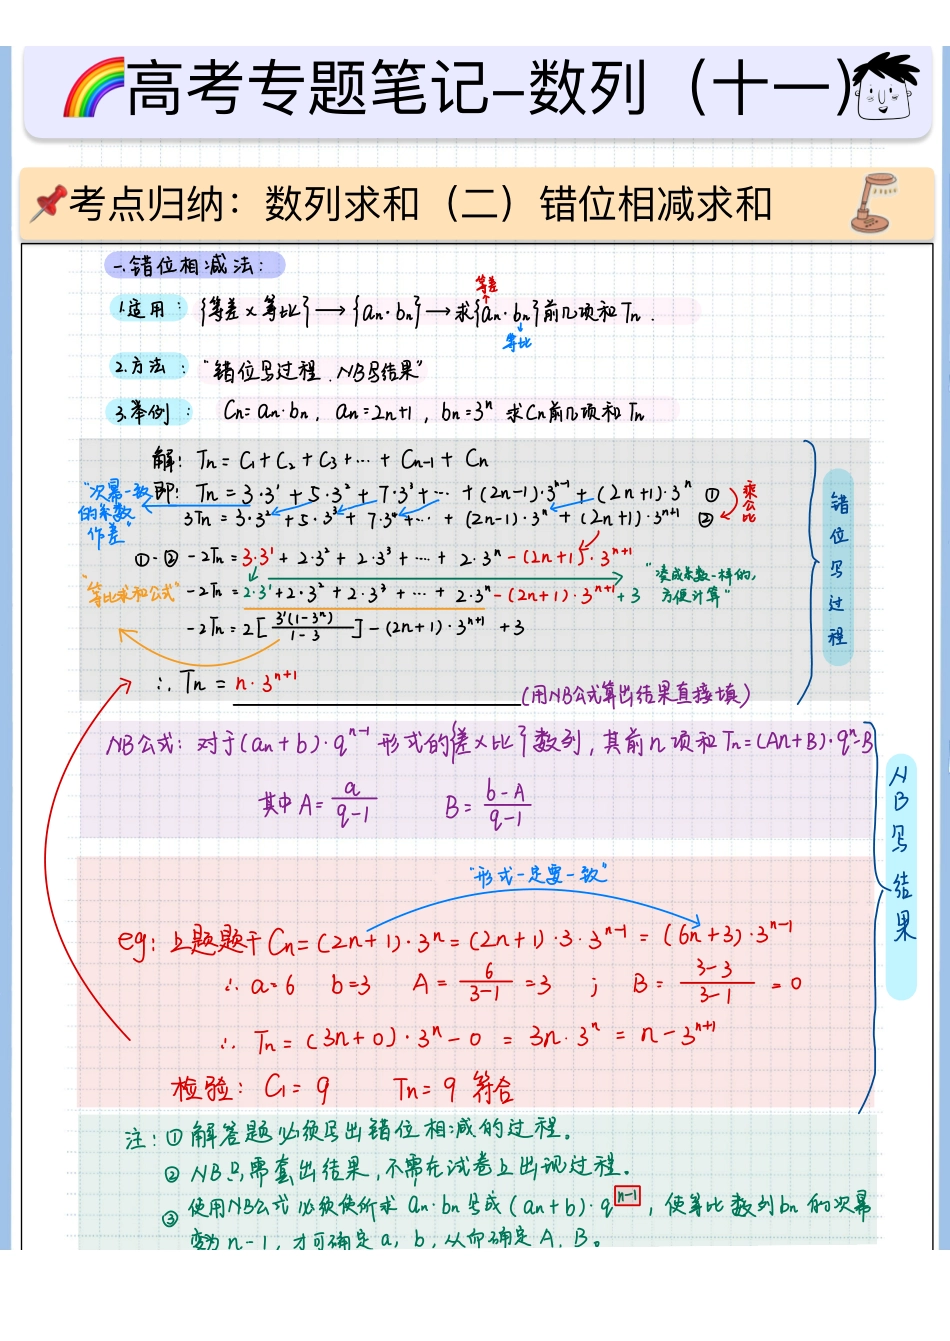 高考专题笔记-数列（十一）
考点归纳：数列求和（二）错位相减求和
一.错位相减法：
等差
1.适用： {等差×等比}→{an·bn}→求{an·bn}前n项和Tn.
等比
2.方法： “错位写过程.NB写结果”
3.举例： Cn=an·bn, an=2n+1, bn=3^n 求Cn前n项和Tn
解: Tn = C1+C2+C3+…+Cn-1+Cn
即: Tn = 3·3^1+5·3^2+7·3^3+…+(2n-1)·3^(n-1)+(2n+1)·3^n ①
3Tn = 3·3^2+5·3^3+7·3^4+…+(2n-1)·3^n+(2n+1)·3^(n+1) ②
乘公比
“次幂一致的系数作差”
①-② -2Tn = 3·3^1+2·3^2+2·3^3+…+2·3^n-(2n+1)·3^(n+1)
“凑成系数一样的,方便计算”
“等比求和公式” -2Tn = 2·3^1+2·3^2+2·3^3+…+2·3^n-(2n+1)·3^(n+1)+3
-2Tn = 2[3^1(1-3^n)/(1-3)]-(2n+1)·3^(n+1)+3
∴ Tn = n·3^(n+1)
(用NB公式算出结果直接填)
错位写过程
NB公式：对于(an+b)·q^(n-1)形式的{差×比}数列,其前n项和Tn=(An+B)·q^n-B
其中A=a/(q-1) B=(b-A)/(q-1)
NB写结果
“形式一定要一致”
eg: 上题题干Cn=(2n+1)·3^n=(2n+1)·3·3^(n-1)=(6n+3)·3^(n-1)
∴ a=6 b=3 A=6/(3-1)=3 ; B=(3-3)/(3-1)=0
∴ Tn=(3n+0)·3^n-0=3n·3^n=n-3^(n+1)
检验: C1=9 Tn=9 符合
注:①解答题必须写出错位相减的过程。
②NB只需套出结果,不需在试卷上出现过程。
③使用NB公式必须使所求an·bn写成(an+b)·q^(n-1),使等比数列bn的次幂
变为n-1,才可确定a,b,从而确定A.B。